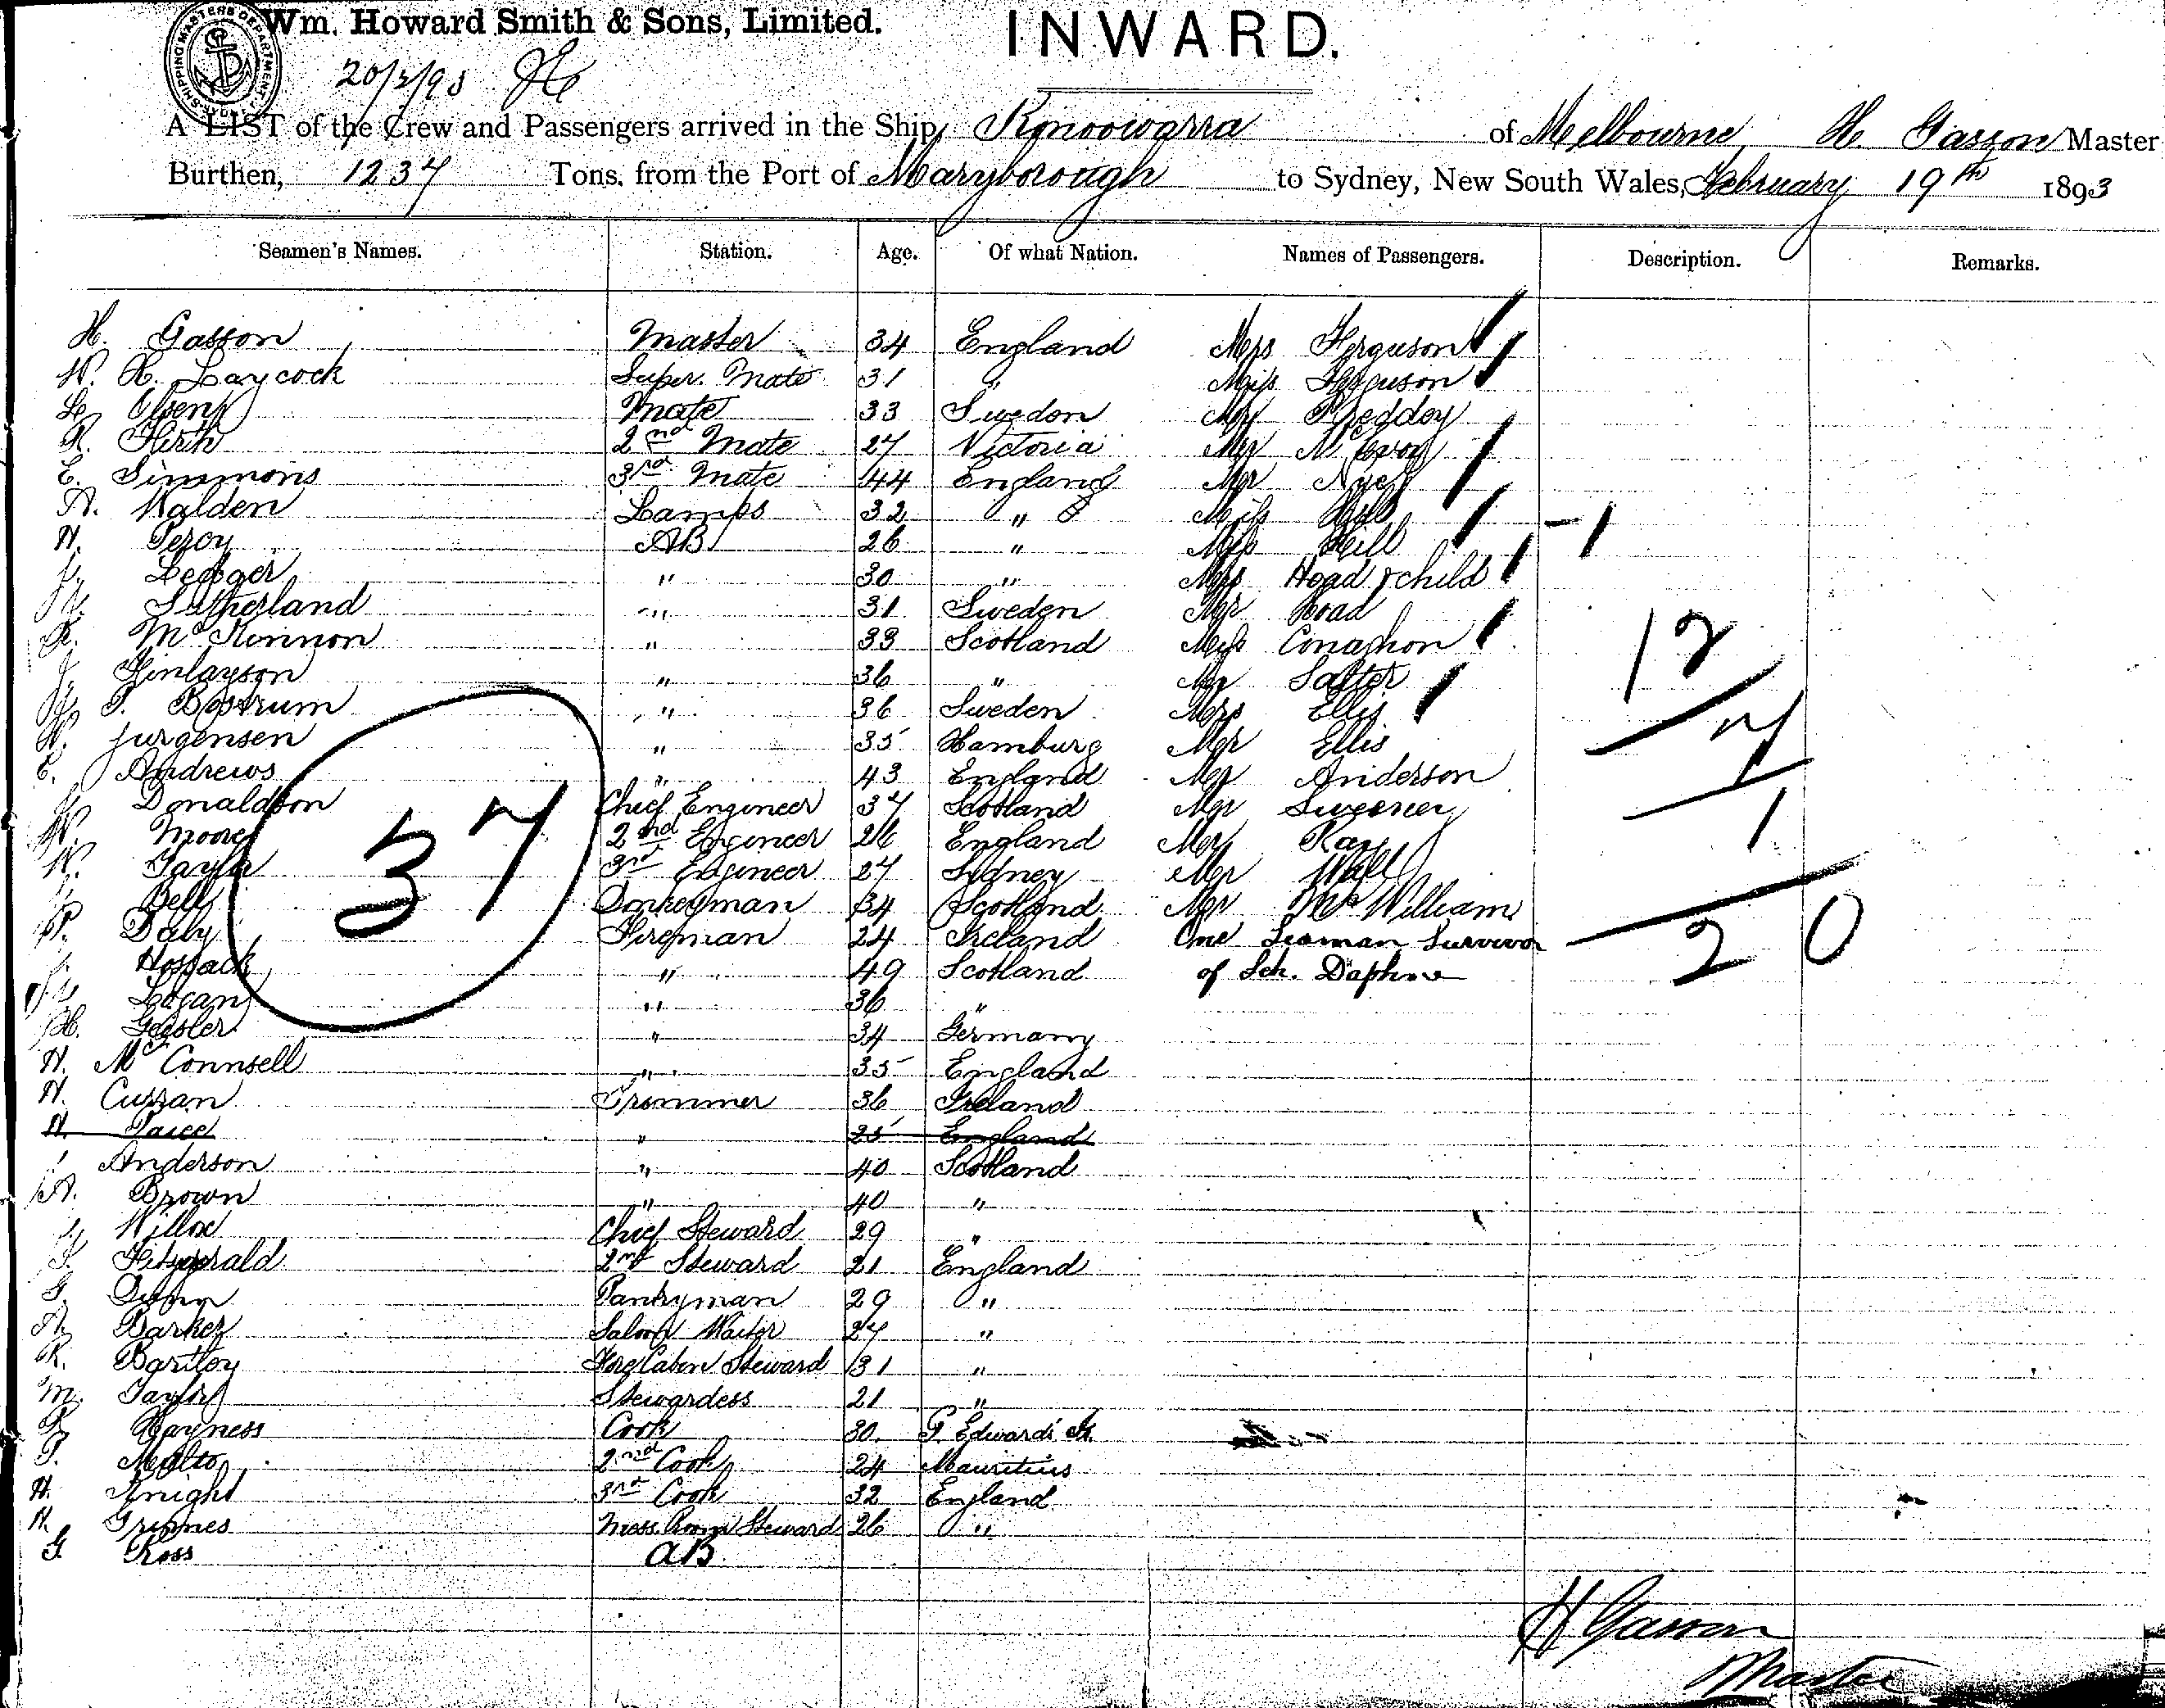 Wm. Howard Smith & Sons, Limited.
INWARD.
SHIPPING MASTERS DEPARTMENT
20/2/93
A LIST of the Crew and Passengers arrived in the Ship, Konoowarra of Melbourne, H. Gasson Master
Burthen, 1237 Tons, from the Port of Maryborough to Sydney, New South Wales, February 19th 1893
Seamen's Names. Station. Age. Of what Nation. Names of Passengers. Description. Remarks.
H. Gasson Master 34 England Mrs Ferguson
W. R. Laycock Super. Mate 31 " Miss Ferguson
Olsen Mate 33 Swedon Mr Preddey
R. Firth 2nd Mate 27 Victoria Mr McEvoy
E. Simmons 3rd Mate 44 England Mr
A. Walden Lamps 32 " Miss Hill
H. Percy AB 26 " Miss Hill - 1
J. Ledger " 30 " Mrs Hoad & child
Sutherland " 31 Sweden Mr Hoad
McKinnon " 33 Scotland Miss Conaghon 12
J. Finlayson " 36 " Mr Salter
P. Bostrum " 36 Sweden Mrs Ellis 7
Jurgensen " 35 Hamburg Mr Ellis
E. Andrews " 43 England Mr Anderson
Donaldson Chief Engineer 37 Scotland Mr Sweeney
W. Moore 2nd Engineer 26 England Mr Ray 1
W. Taylor 3rd Engineer 27 Sidney Mr Wall
Bell Donkeyman 34 Scotland Mr McWilliam
P. Daly Fireman 24 Ireland One Seaman Survivor 20
Hossack " 49 Scotland of Sch. Daphne
Logan " 36 "
37
H. Geisler " 34 Germany
H. McConnsell " 35 England
H. Curran Trimmer 36 Ireland
H. Paice " 25 England
Anderson " 40 Scotland
A. Brown " 40 "
Willox Chief Steward 29 "
Fitzgerald 2nd Steward 21 England
G. Dunn Pantryman 29 "
A. Barker Saloon Waiter 27 "
R. Bartley Fore Cabin Steward 31 "
M. Taylor Stewardess 21 "
Hayness Cook 30 P. Edward's Is.
P. Malto 2nd Cook 24 Mauritius
H. Knight 3rd Cook 32 England
Grimes Mess Room Steward 26 "
G. Ross AB
H Gasson
Master